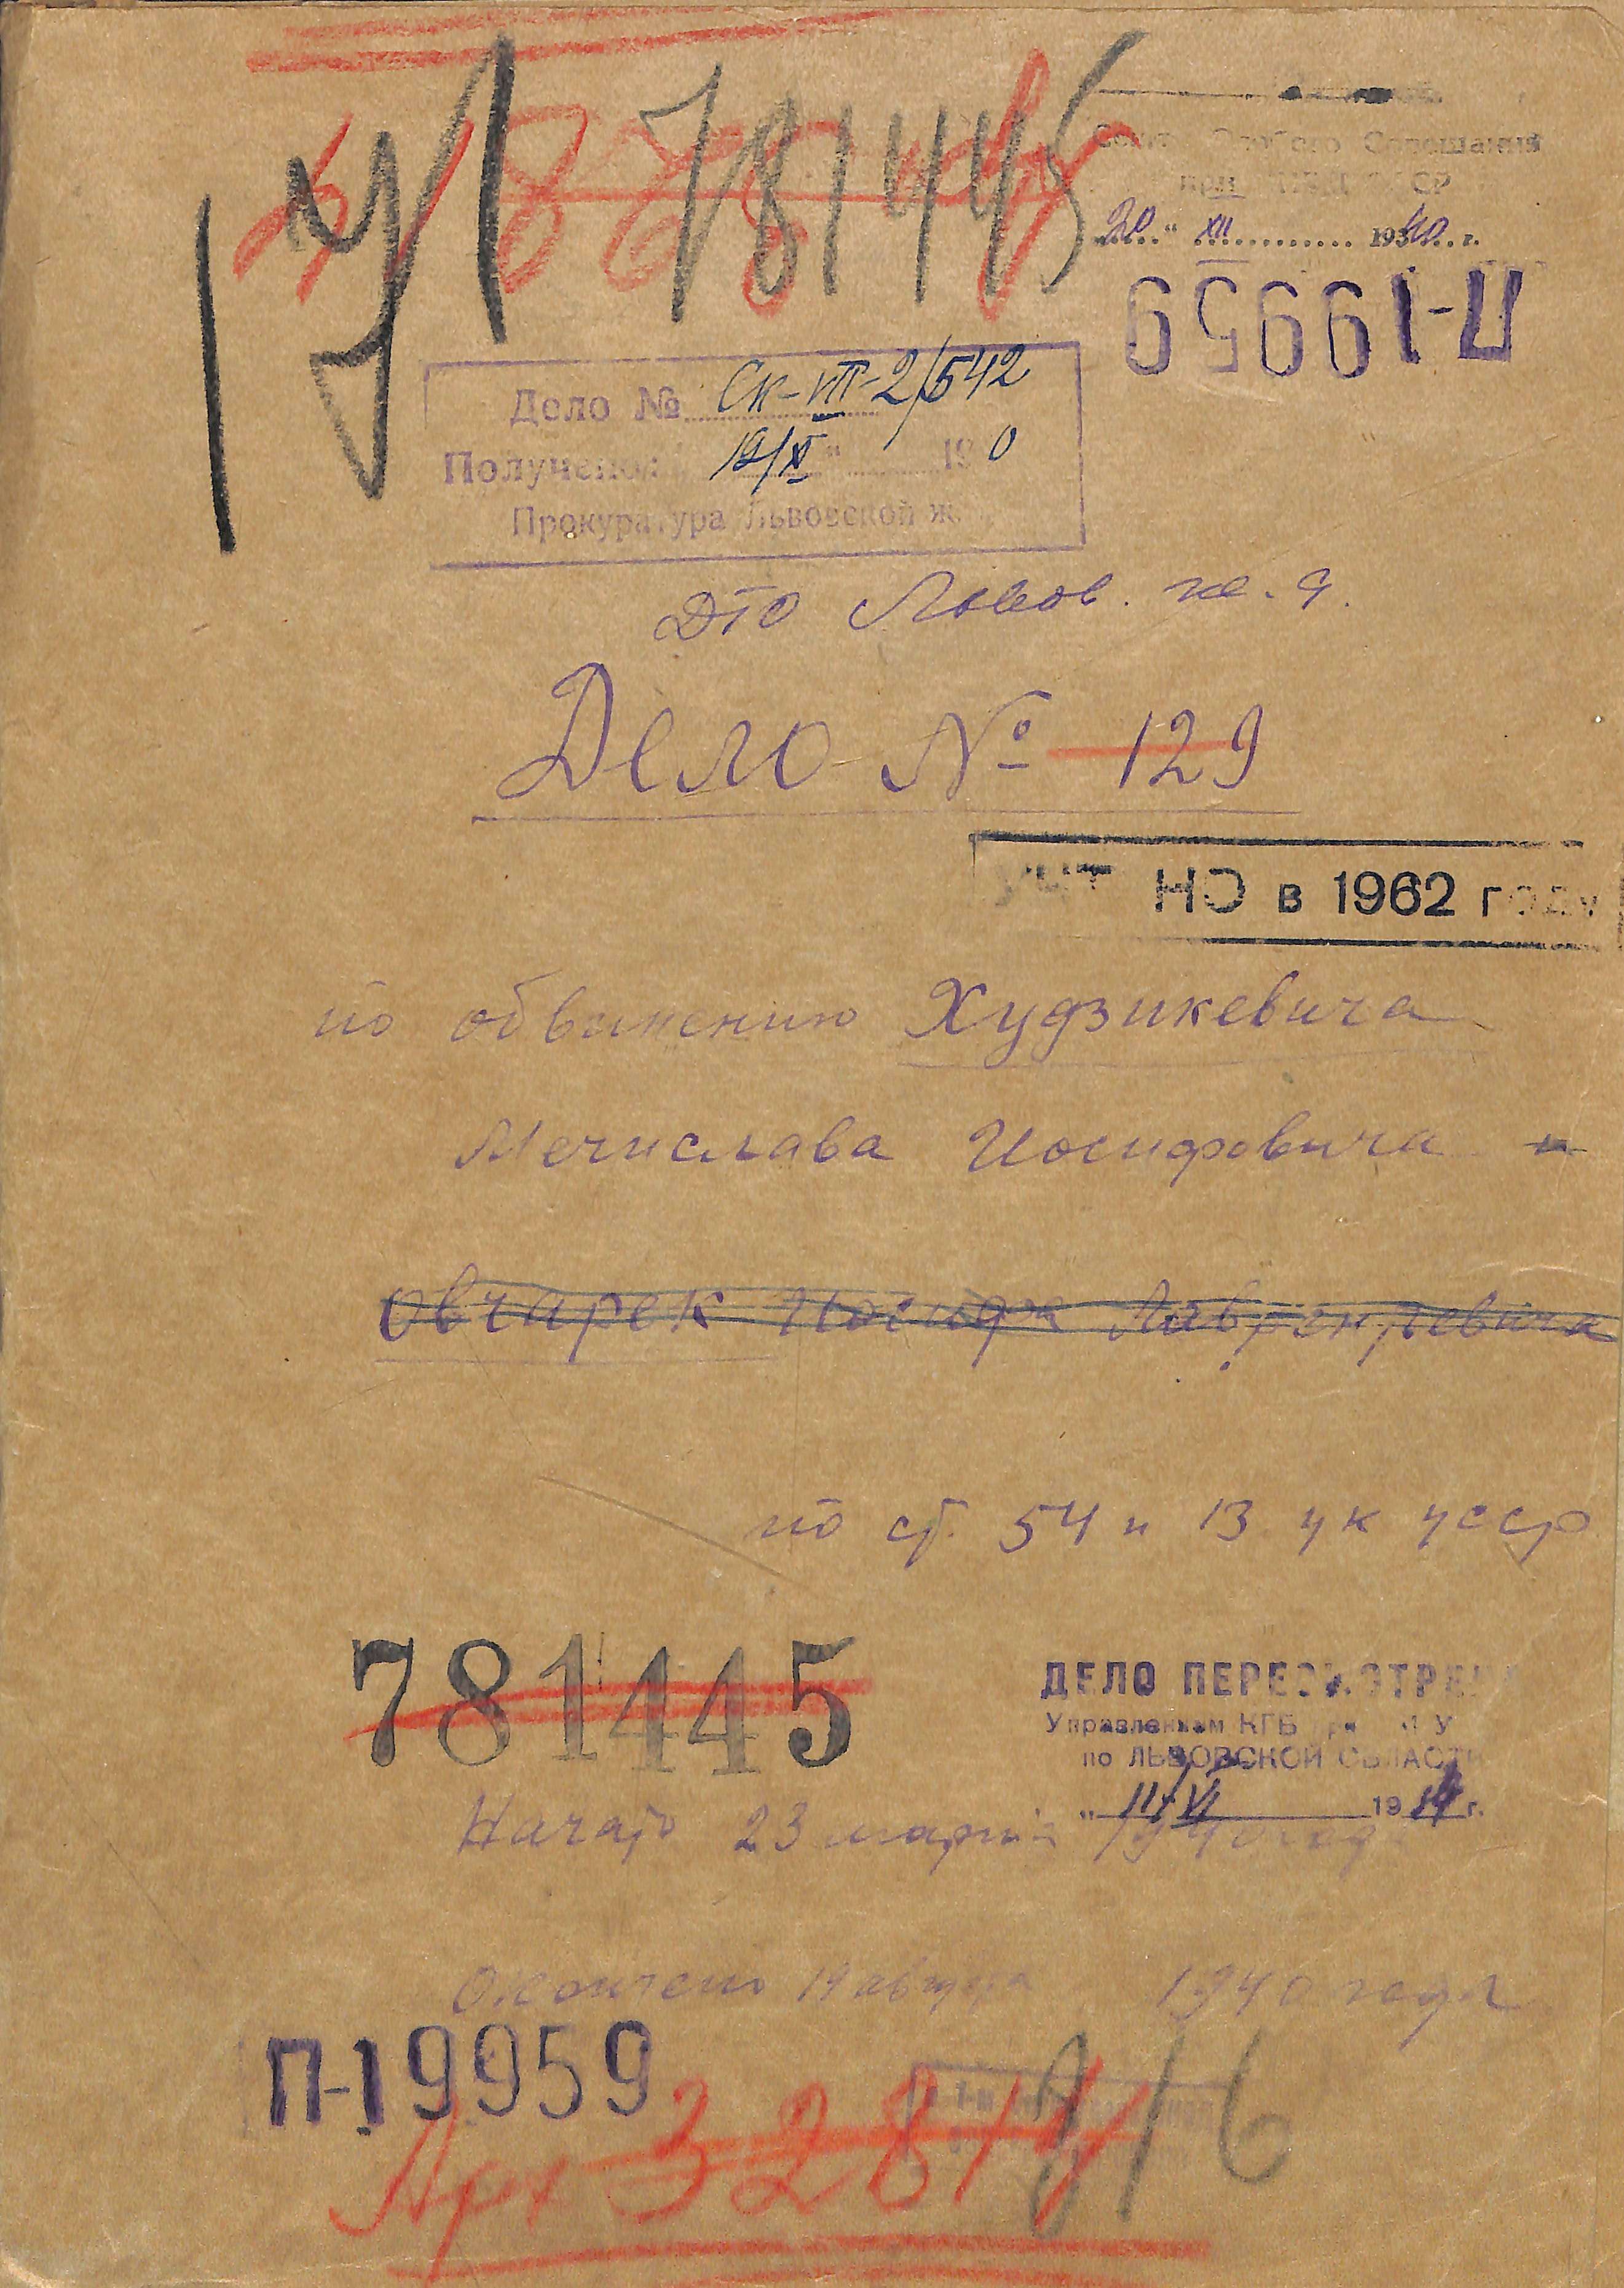 781445
Особого Совещания
при НКВД СССР
"20" XII 1940 г.
П-19959
Дело № Ск-VII-2/542
Получено 19/X 1940
Прокуратура Львовской ж.
ДТО Львов. ж. д.
Дело № 129
УЧТЕНО в 1962 году
по обвинению Худзикевича
Мечислава Иосифовича и
Овчарек Иосифа Лаврентьевича
по ст. 54 и 13 УК УССР
781445
ДЕЛО ПЕРЕСМОТРЕНО
Управлением КГБ при СМ У
по ЛЬВОВСКОЙ ОБЛАСТИ
" 11/VI 19 г.
Начато 23 марта 1940 года
Окончено 19 августа 1940 года
П-19959
Арх 3281